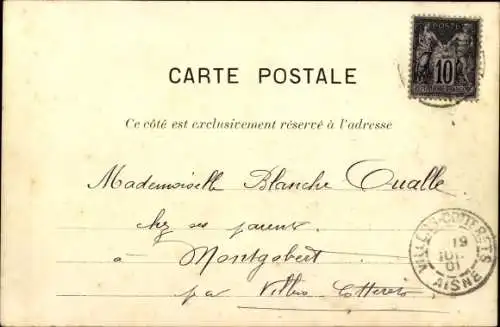 POSTE
10
CARTE POSTALE
Ce côté est exclusivement réservé à l'adresse
Mademoiselle Blanche Oualle
chez ses parents
à Montgobert
par Villers-Cotterets
VILLERS-COTTERETS
19
JUIL
01
AISNE